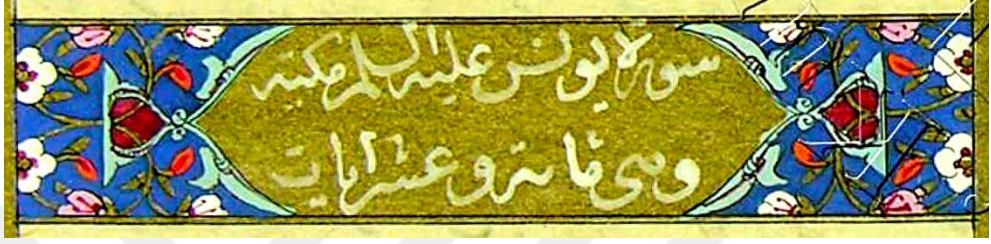 سورة يونس عليه السلم مكية
وهي مائة وعشر ايات